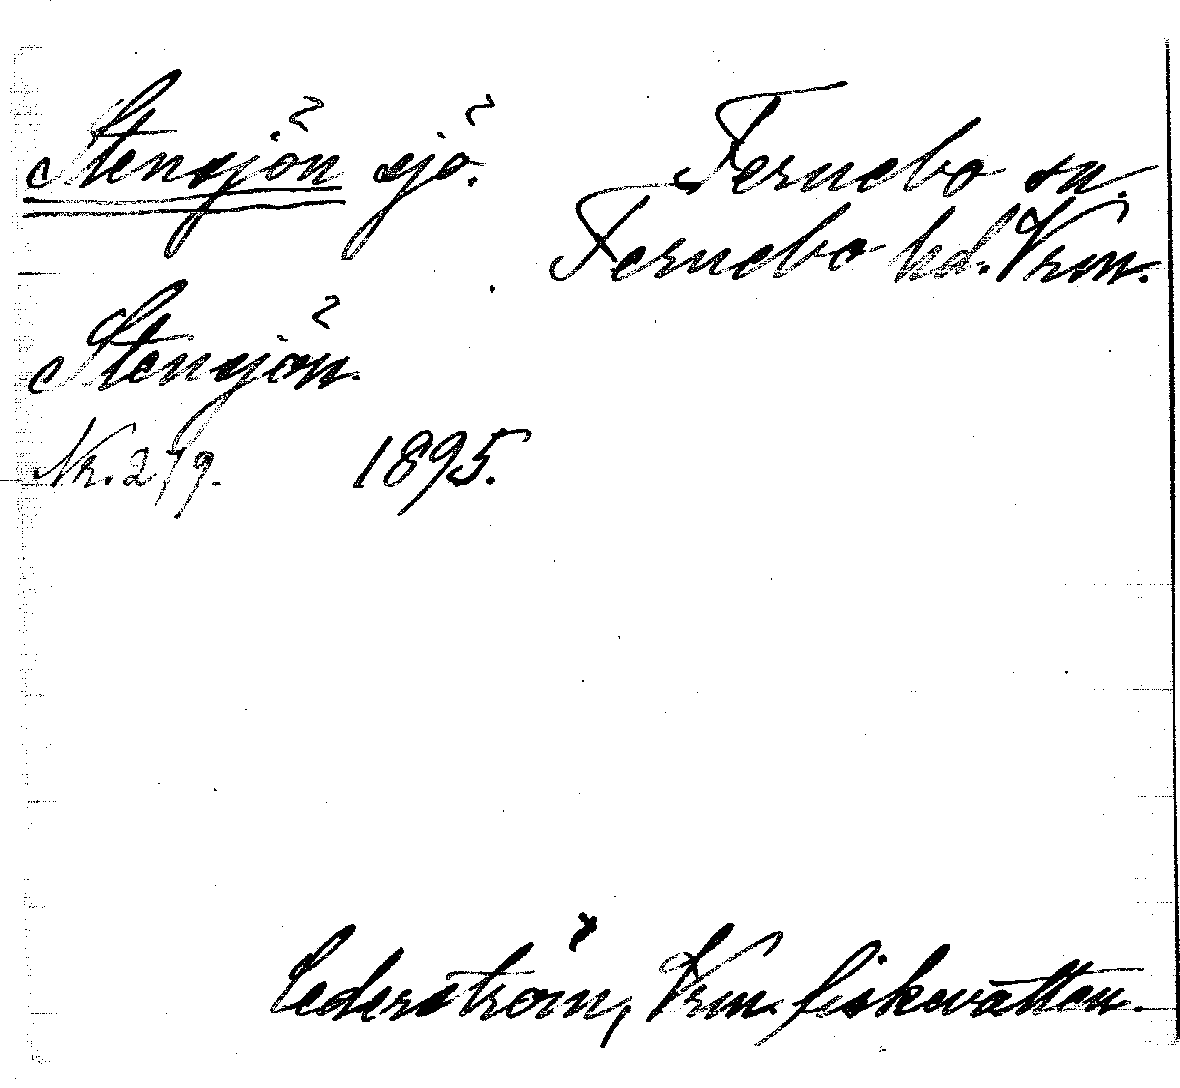 Stensjön sjö.
Fernebo sn.
Fernebo hd. Vrm.
Stensjön.
Nr. 279. 1895.
Cederström, Vrm. fiskevatten.